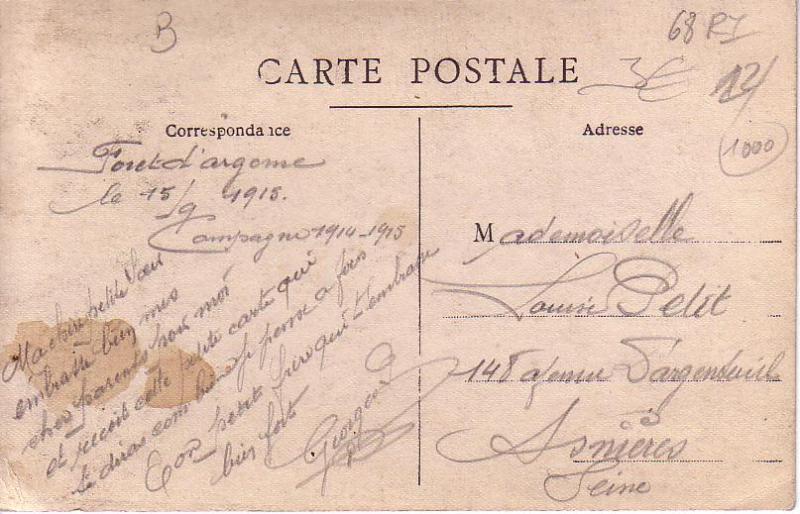 B
68 RI
CARTE POSTALE
3€
12/
1000
Correspondance
Foret d'argonne
le 15/9 1915.
Campagne 1914-1915
Ma chère petite Sœur
embrasse bien mes
chers parents pour moi
et reçoit cette petite carte qui
te diras combien je pense a fois
Ton petit frère qui t'embrasse
bien fort
Georges
Adresse
Mademoiselle
Louise Petit
148 avenue D'argenteuil
Asnières
Seine